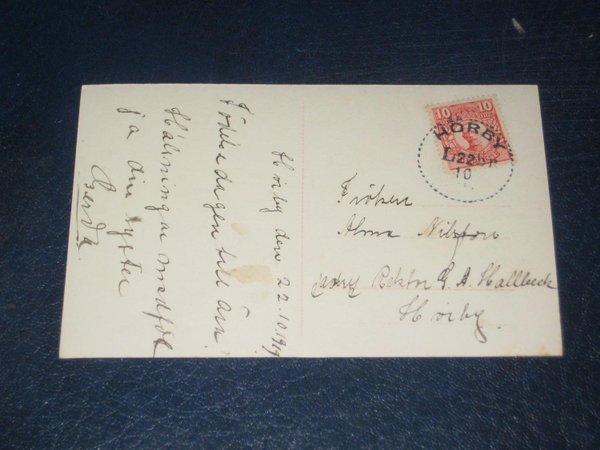 Hörby den 22.10.1919
födelsedagen till ära
Hälsningar medföl
ja din syster
Berda
10 10
HÖRBY
22
10
Fröken
Alma Nilsson
Rektor G. A. Hallbeck
Hörby